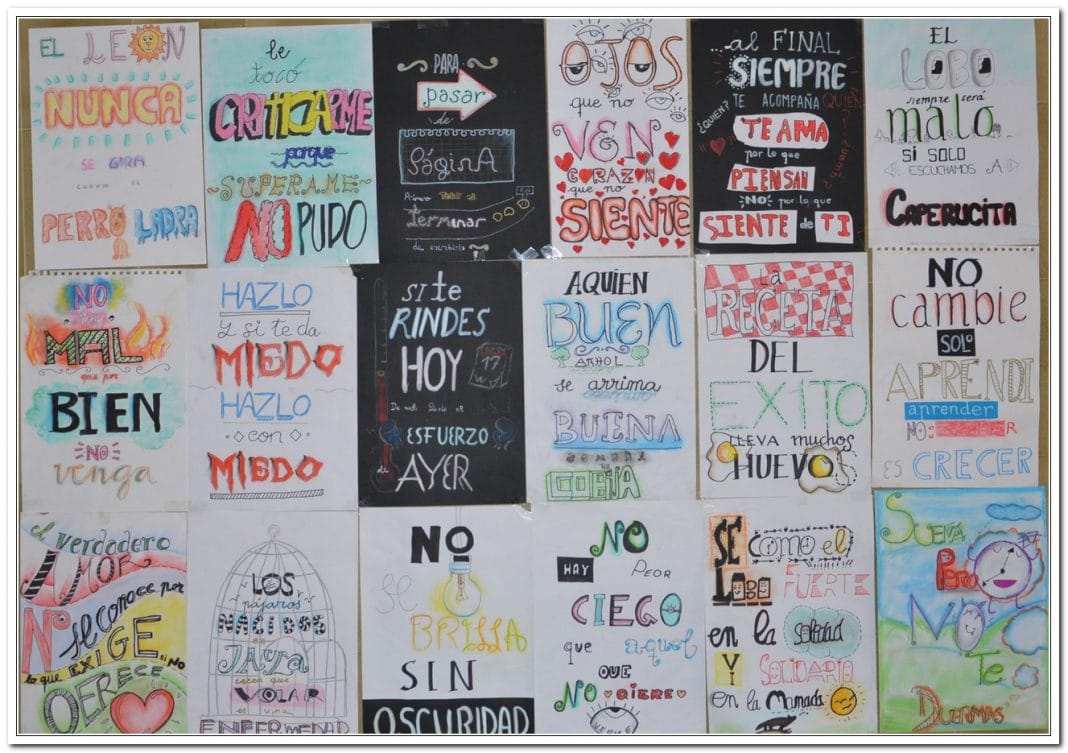 EL LEON
NUNCA
SE GIRA
cuando el
PERRO LADRA
te
tocó
CRITICARME
porque
SUPERAME
NO PUDO
PARA
pasar
de
PáginA
Primero
terminar
de escribirla
OJOS
que no
VEN
CORAZON
que no
SIENTE
...al FINAL
SIEMPRE
TE ACOMPAÑA QUIEN
¿QUIEN?
TE AMA
por lo que
PIENSAN
NO por lo que
SIENTE de TI
EL
LOBO
siempre será
malo
SI SOLO
ESCUCHAMOS A
CAPERUCITA
NO
hay
MAL
que por
BIEN
NO
venga
HAZLO
Y si te da
MIEDO
HAZLO
con
MIEDO
SI te
RINDES
HOY
17
De nada sirvió el
ESFUERZO
de
AYER
AQUIEN
BUEN
ARBOL
se arrima
BUENA
SOMBRA
LE
COBIJA
La
RECETA
DEL
EXITO
LLEVA muchos
HUEVOS
NO
cambie
SOLO
APRENDI
aprender
NO ES
ES CRECER
el verdadero
AMOR
No se conoce por
lo que EXIGE si NO
OFRECE
LOS
pájaros
NACIDOS
en
JAULA
creen que
VOLAR
es una
ENFERMEDAD
NO
se
BRILLA
SIN
OSCURIDAD
NO
HAY PEOR
CIEGO
que aquel
QUE
NO QUIERE
VER
SE como el
LOBO FUERTE
en la soledad
Y SOLIDARIO
en la Manada
SUEÑA
Pero
NO
Te
DUERMAS